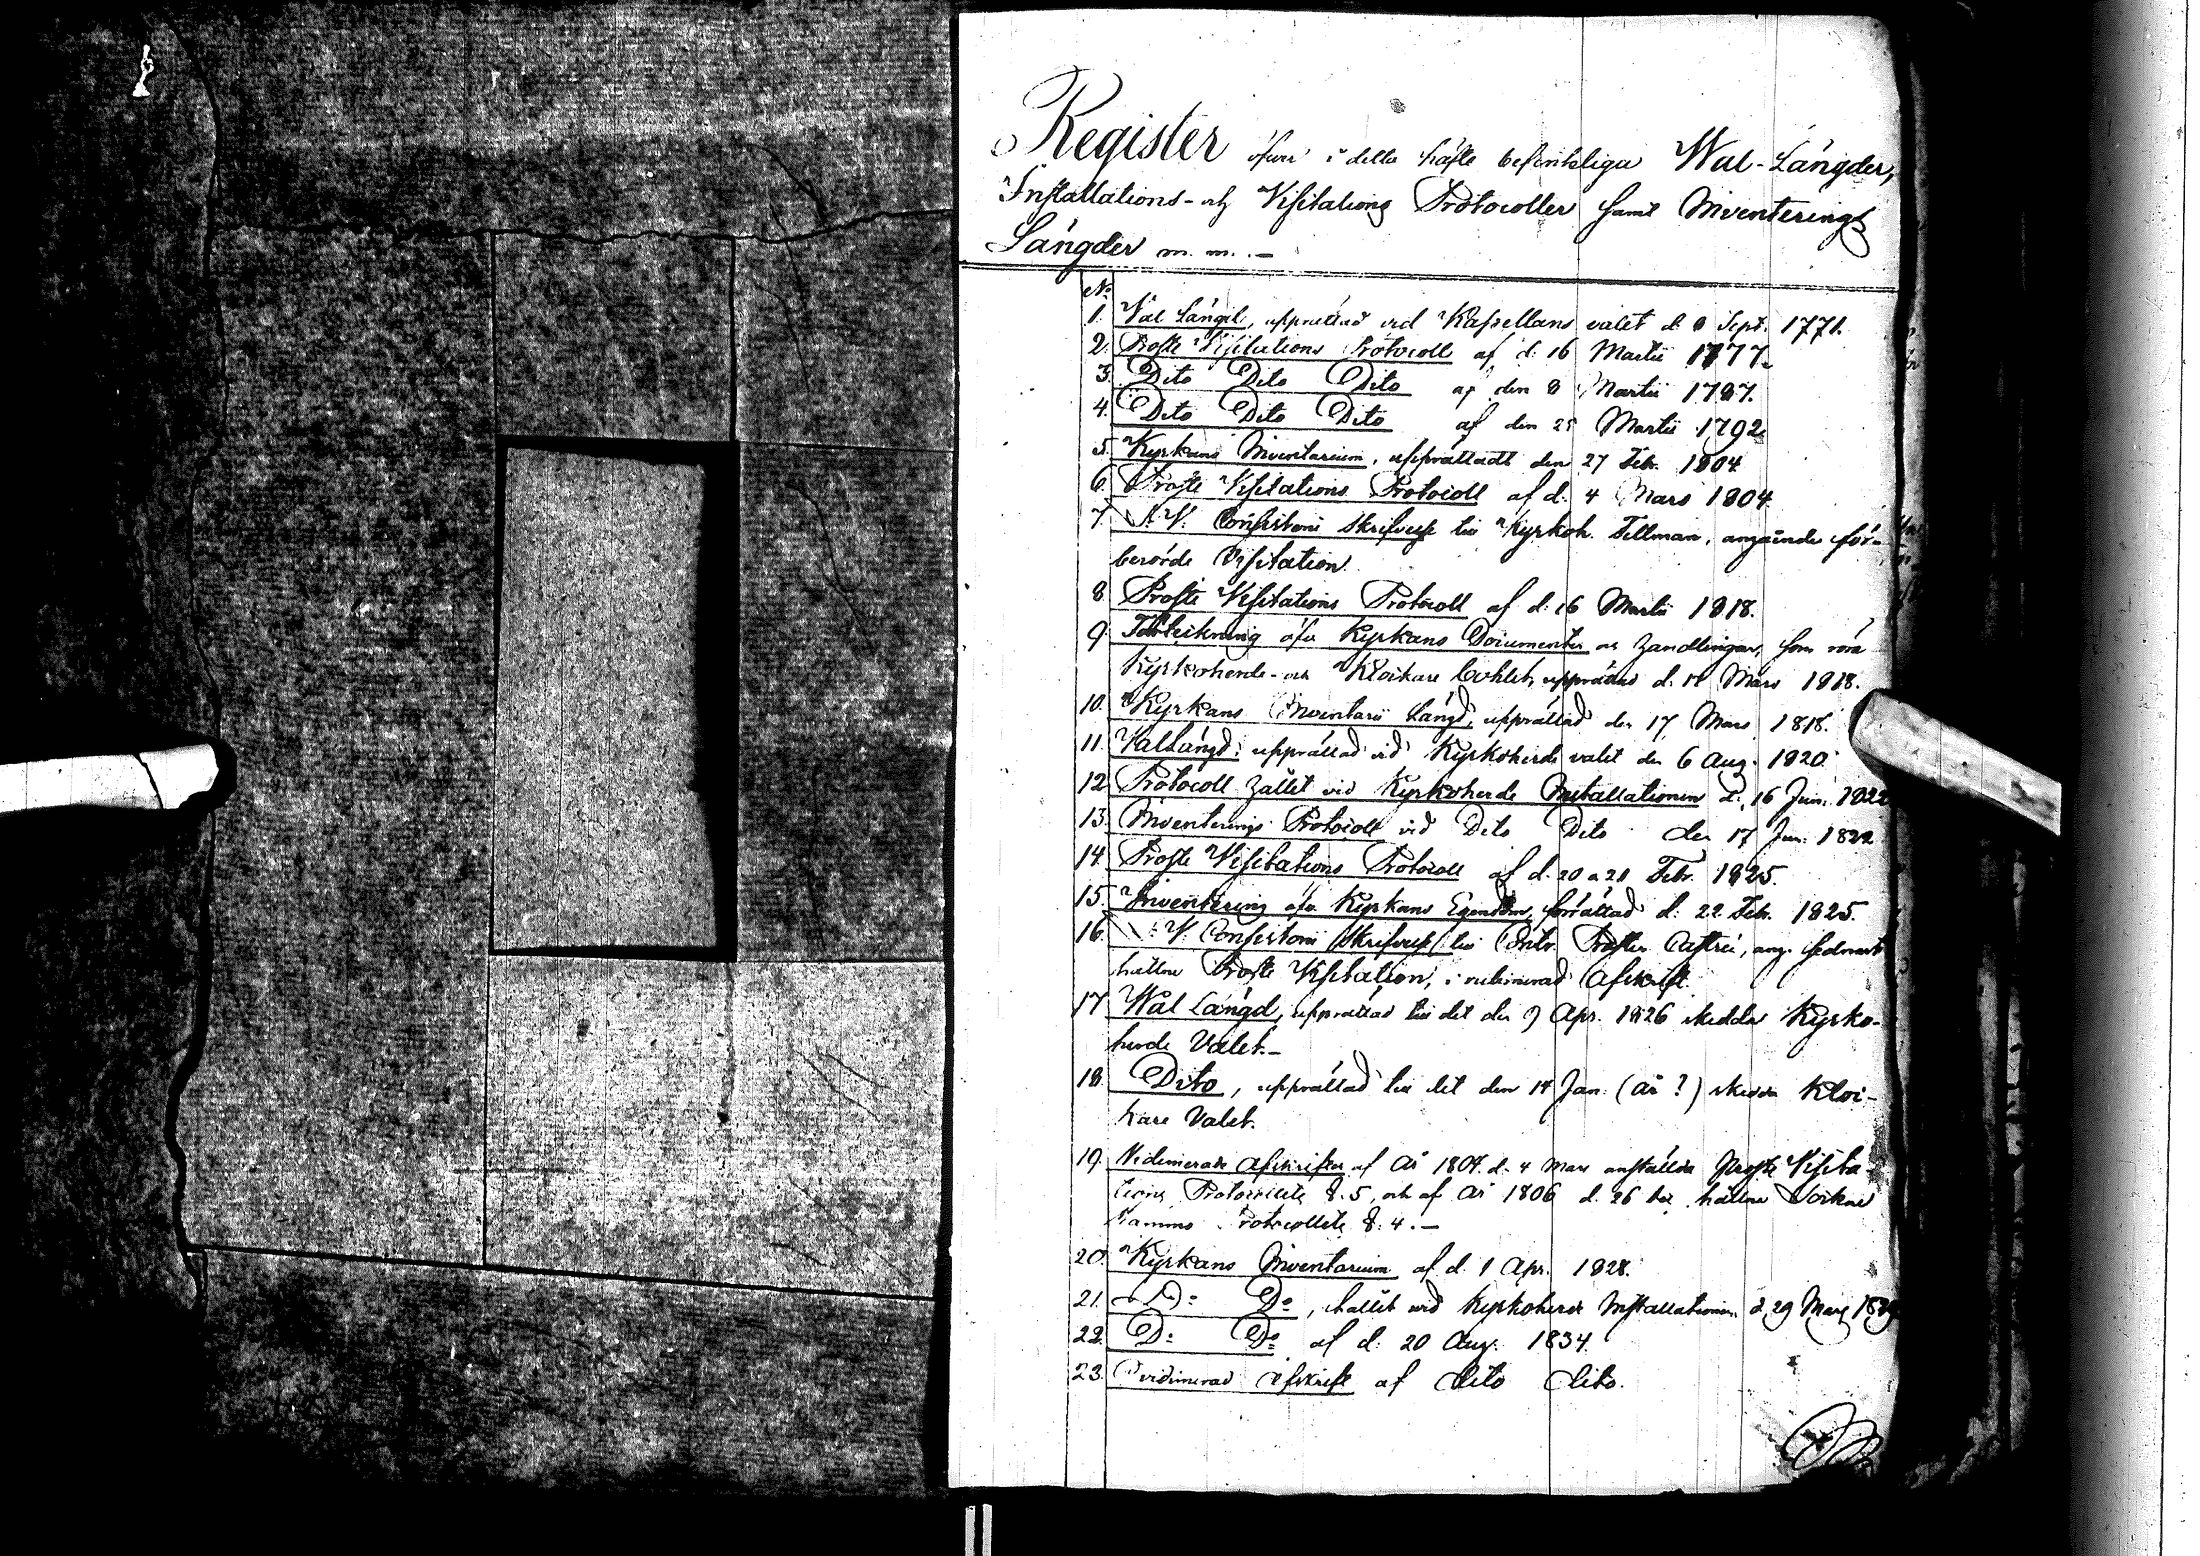 Register öfver i detta häfte befinteliga Wal-Längder,
Installations- och Visitations Protocoller samt Inventerings
Längder m. m. –
No
1. Val Längd, upprättad vid Kapellans valet d. 8 Sept. 1771.
2. Proste Visitations Protocoll af d. 16 Martii 1777.
3. Dito Dito Dito af den 8 Martii 1787.
4. Dito Dito Dito af den 25 Martii 1792
5. Kyrkans Inventarium, upprättadt den 27 Febr. 1804
6. Proste Visitations Protocoll af d. 4 Mars 1804
7. M. V. Consistorii skrifvelse till Kyrkoh. Tillman, angående för-
berörde Visitation.
8. Proste Visitations Protocoll af d. 16 Martii 1818.
9. Förteckning öfver Kyrkans Documenter och Handlingar, som röra
Kyrkoherde- och Klockare Bohlet, upprättad d. Mars 1818.
10. Kyrkans Inventarii Längd, upprättad den 17 Mars 1818.
11. Val Längd, upprättad vid Kyrkoherde valet den 6 Aug. 1820.
12. Protocoll hållet vid Kyrkoherde Installationen d. 16 Jun. 1822
13. Inventerings Protocoll vid Dito Dito den 17 Jun. 1822
14. Proste Visitations Protocoll af d. 20 a 21 Febr. 1825.
15. Inventering öfver Kyrkans Egendom, förrättad d. 22 Febr. 1825.
16. M. V. Consistorii skrifvelse till Contr. Prosten Castrén, ang.
hållne Proste Visitation, i vidimerad Afskrift.
17. Wal Längd, upprättad till det den 9 Apr. 1826 skedda Kyrko-
herde Valet. –
18. Dito, upprättad till det den 14 Jan. (år ?) skedda Kloc-
kare Valet.
19. Vidimerade Afskrifter af År 1804 d. 4 Mars anstälda Proste Visita-
tions Protocollets §. 5, och af År 1806 d. 26 hållne Sockne
stämmo Protocollets §. 4. –
20. Kyrkans Inventarium af d. 1 Apr. 1828.
21. Do Do, hållit vid Kyrkoherde Installationen d. 29 Mars
22. Do Do af d. 20 Aug. 1834.
23. vidimerad Afskrift af dito dito.